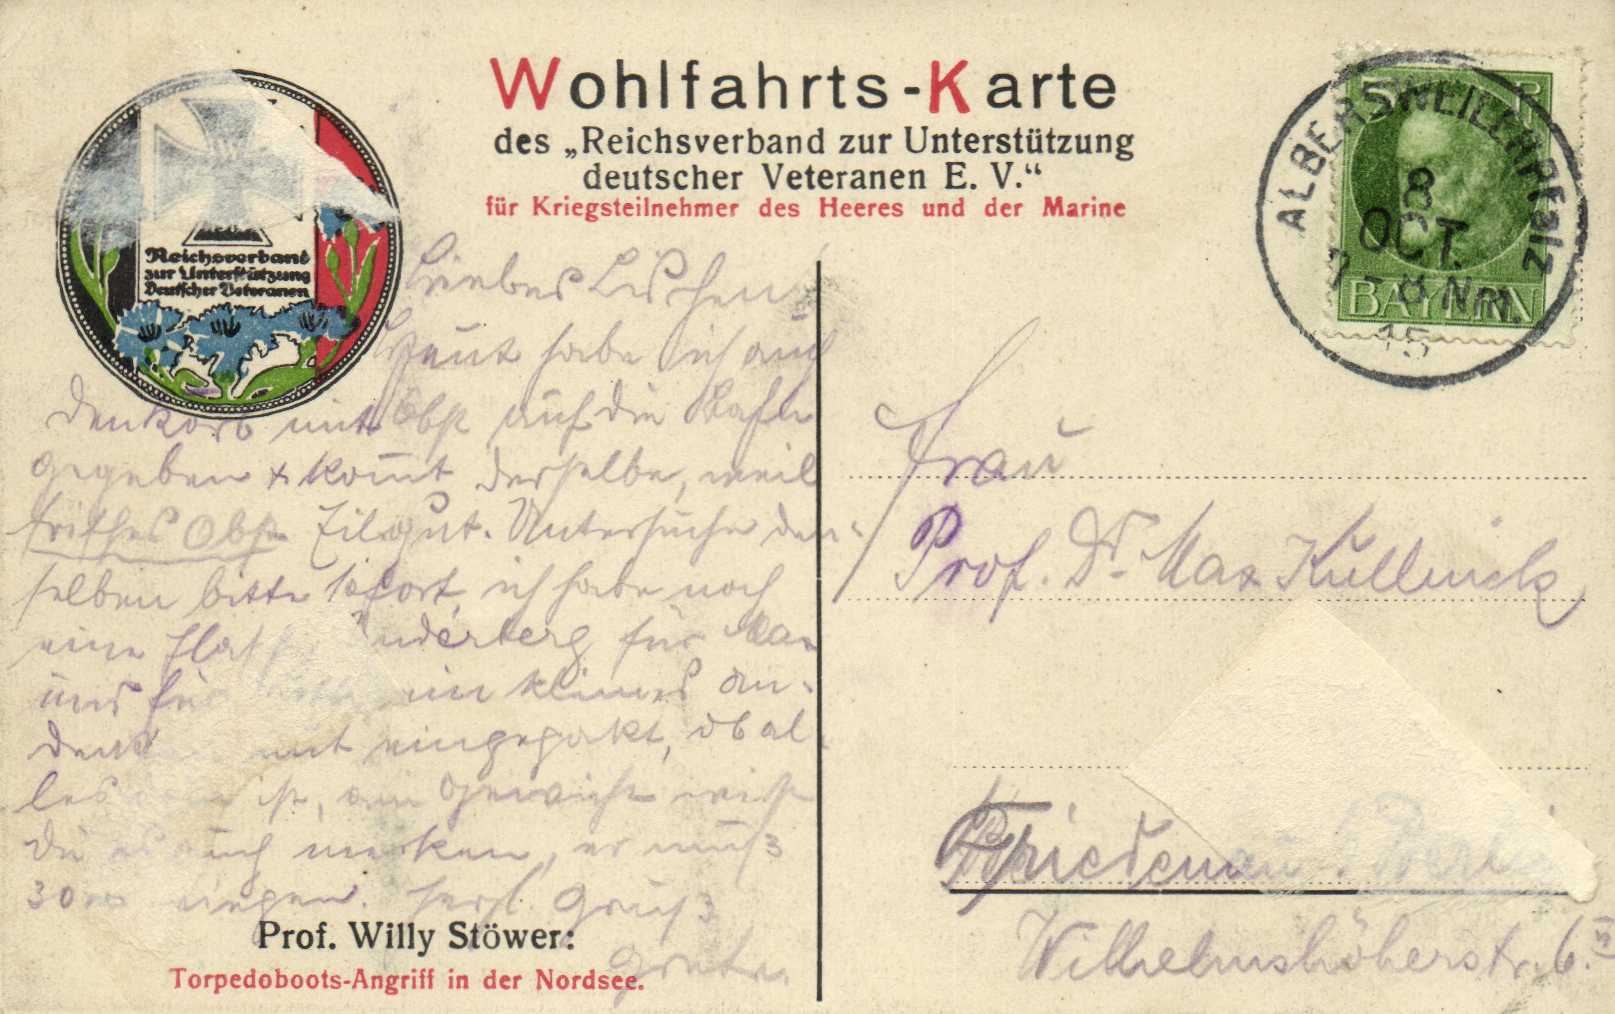 Wohlfahrts-Karte
des „Reichsverband zur Unterstützung
deutscher Veteranen E. V.“
für Kriegsteilnehmer des Heeres und der Marine
Reichsverband
zur Unterstützung
Deutscher Veteranen
ALBERSWEILER Pfalz
8
OCT.
NM.
15
5 P
BAYERN
Liebes Lischen
Heut habe ich auch
denkorb mit Obst auf die Bahn
gegeben + kom̅t derselbe, weil
frisches Obst Eilgut. Untersuche den-
selben bitte sofort, ich habe noch
eine für Max
und für ein kleines An-
denken mit eingepakt, ob al-
les ist, am Gewicht wirst
du es auch merken, er muß
30 wiegen. Herzl. Gruß
Grete.
Frau
Prof. Dr. Max Kullnick
Friedenau / Berlin
Wilhelmshöherstr. 6.
Prof. Willy Stöwer:
Torpedoboots-Angriff in der Nordsee.